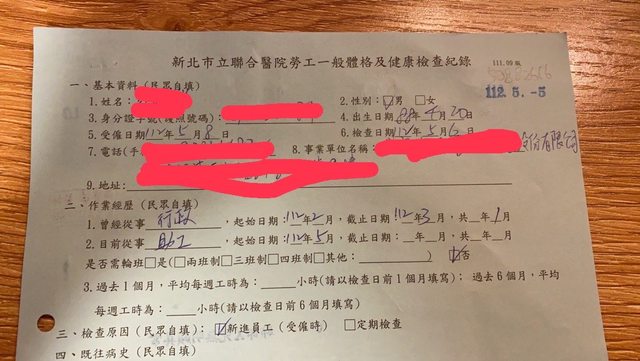 新北市立聯合醫院勞工一般體格及健康檢查紀錄
111.09版
112. 5. -5
一、基本資料(民眾自填)
1.姓名: 2.性別:☑男 □女
3.身分證字號(護照號碼): 4.出生日期:88年4月20日
5.受僱日期112年5月8日 6.檢查日期112年5月6日
7.電話(手 8.事業單位名稱: 股份有限公司
9.地址:
二、作業經歷(民眾自填)
1.曾經從事 行政 ,起始日期:112年2月,截止日期:112年3月,共__年1月
2.目前從事 助工 ,起始日期:112年5月,截止日期:__年__月,共__年__月
是否需輪班□是(□兩班制□三班制□四班制□其他:________) ☑否
3.過去1個月,平均每週工時為:____小時(請以檢查日前1個月填寫);過去6個月,平均
每週工時為:____小時(請以檢查日前6個月填寫)
三、檢查原因(民眾自填):☑新進員工(受僱時) □定期檢查
四、既往病史(民眾自填)